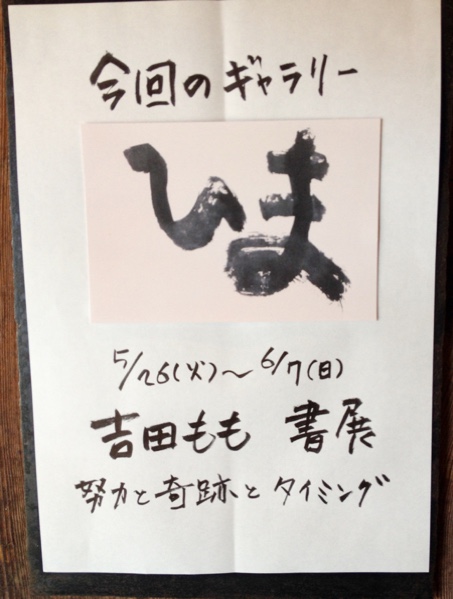 今回のギャラリー
いま
5/26(火)～6/7(日)
吉田もも 書展
努力と奇跡とタイミング